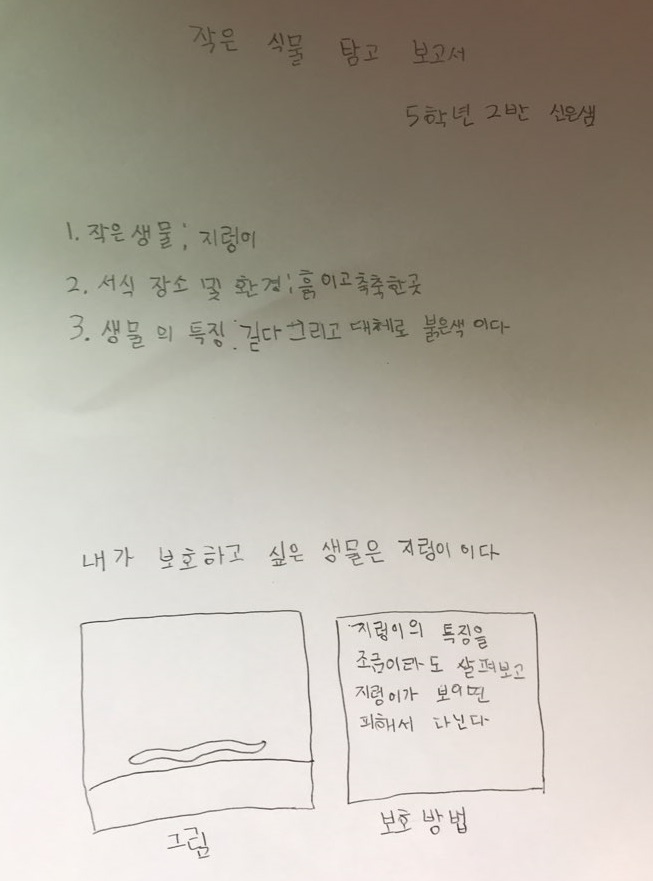 작은 식물 탐고 보고서
5학년 2반 신은샘
1. 작은생물; 지렁이
2. 서식 장소 및 환경; 흙이고축축한곳
3. 생물의 특징: 길다 그리고 대체로 붉은색 이다
내가 보호하고 싶은 생물은 지렁이 이다
지렁이의 특징을
조금이라도 살펴보고
지렁이가 보이면
피해서 다닌다
그림
보호 방법